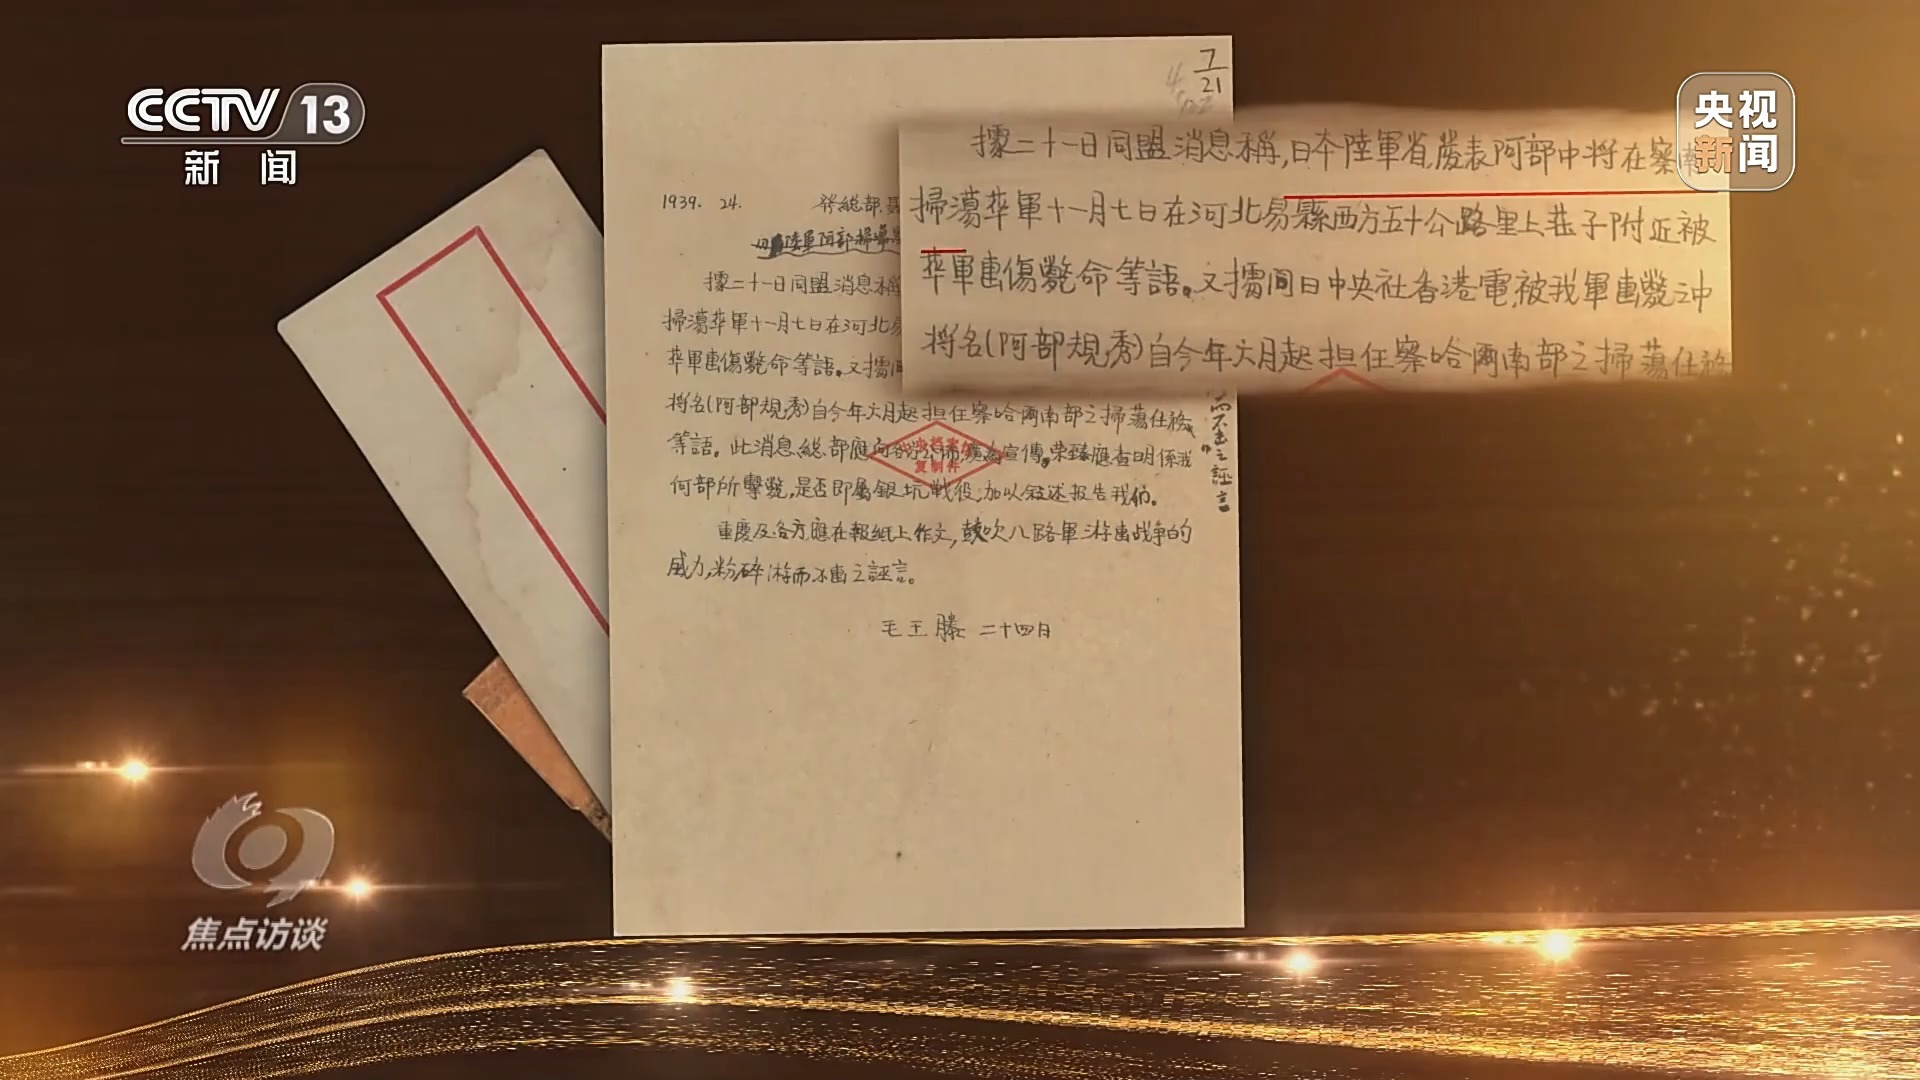 CCTV 13
新闻
央视
新闻
7
21
據二十一日同盟消息稱,日本陸軍省發表阿部中將在察南
掃蕩華軍十一月七日在河北易縣西方五十公路里上莊子附近被
華軍击傷斃命等語。又據间日中央社香港電,被我軍击斃之中
將名(阿部規秀)自今年六月起担任察哈爾南部之掃蕩任務
1939. 24. 發總部,聶
據二十一日同盟消息稱
掃蕩華軍十一月七日在河北易
華軍击傷斃命等語。又據间
將名(阿部規秀)自今年六月起担任察哈爾南部之掃蕩任務
等語。此消息總部應向各方公佈擴為宣傳。榮臻應查明係我
何部所擊斃,是否即屬銀坑戰役,加以叙述报告我们。
重慶及各方應在報紙上作文,鼓吹八路軍游击战争的
威力,粉碎游而不击之誣言。
毛王滕 二十四日
而不击之誣言
中央档案馆
复制件
焦点访谈